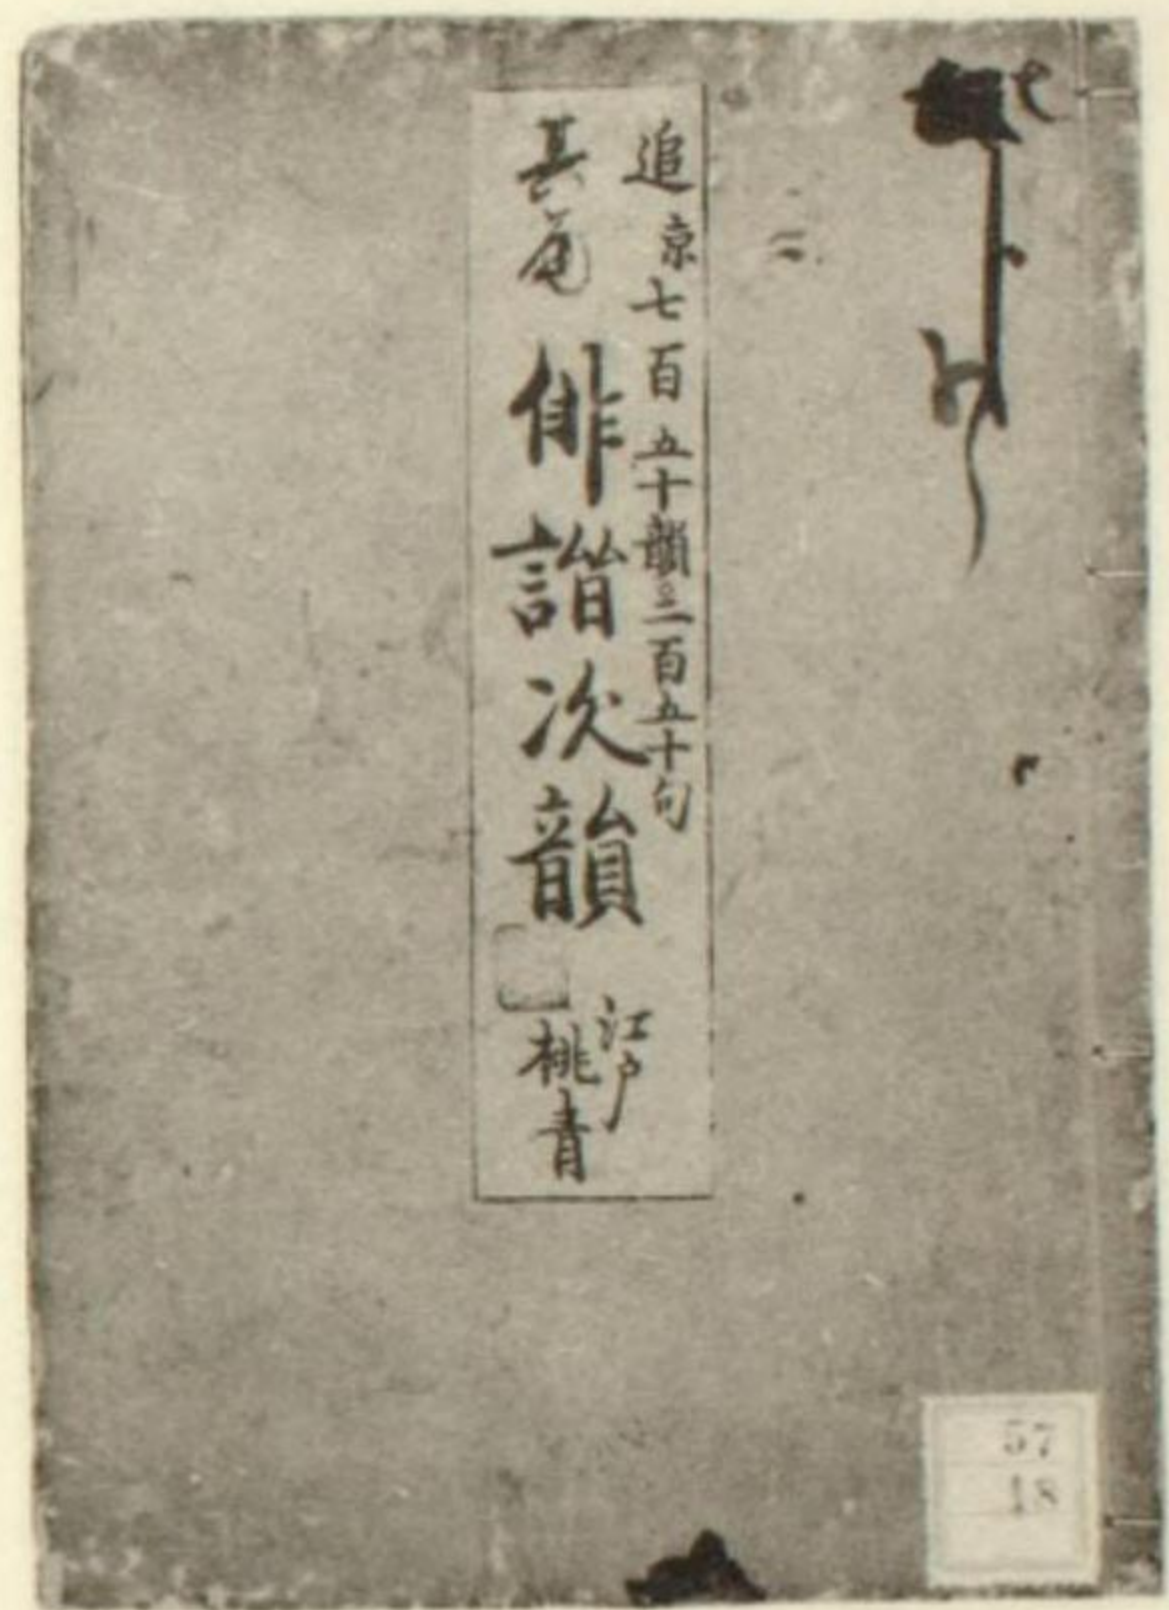 追京七百五十韻二百五十句
俳諧次韻
江戸
桃青
57
18